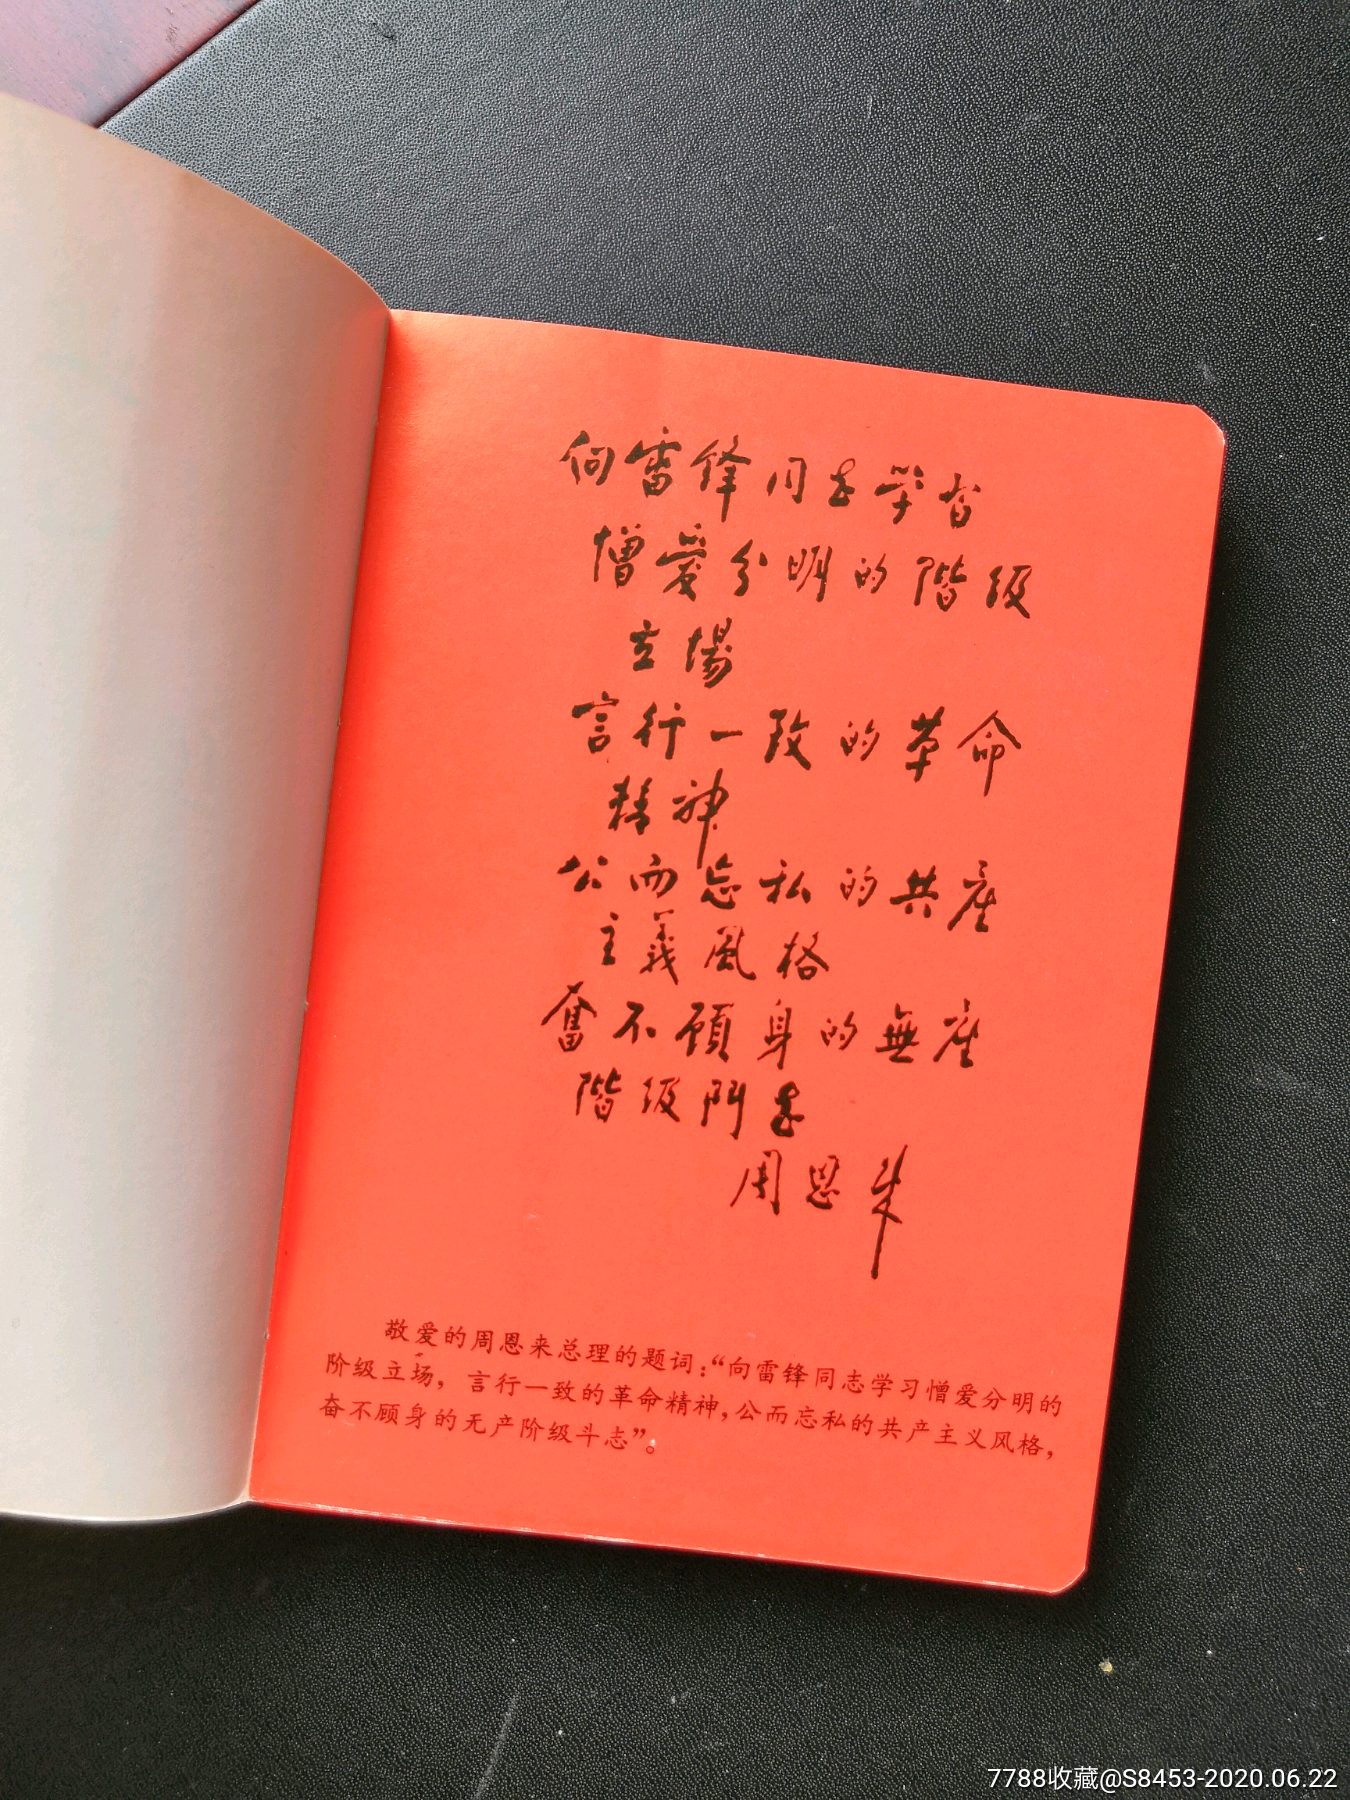 向雷锋同志学習
憎愛分明的階级
立場
言行一致的革命
精神
公而忘私的共産
主義風格
奮不顧身的無産
階级鬥志
周恩来
敬爱的周恩来总理的题词：“向雷锋同志学习憎爱分明的
阶级立场，言行一致的革命精神，公而忘私的共产主义风格，
奋不顾身的无产阶级斗志”。
7788收藏@S8453-2020.06.22